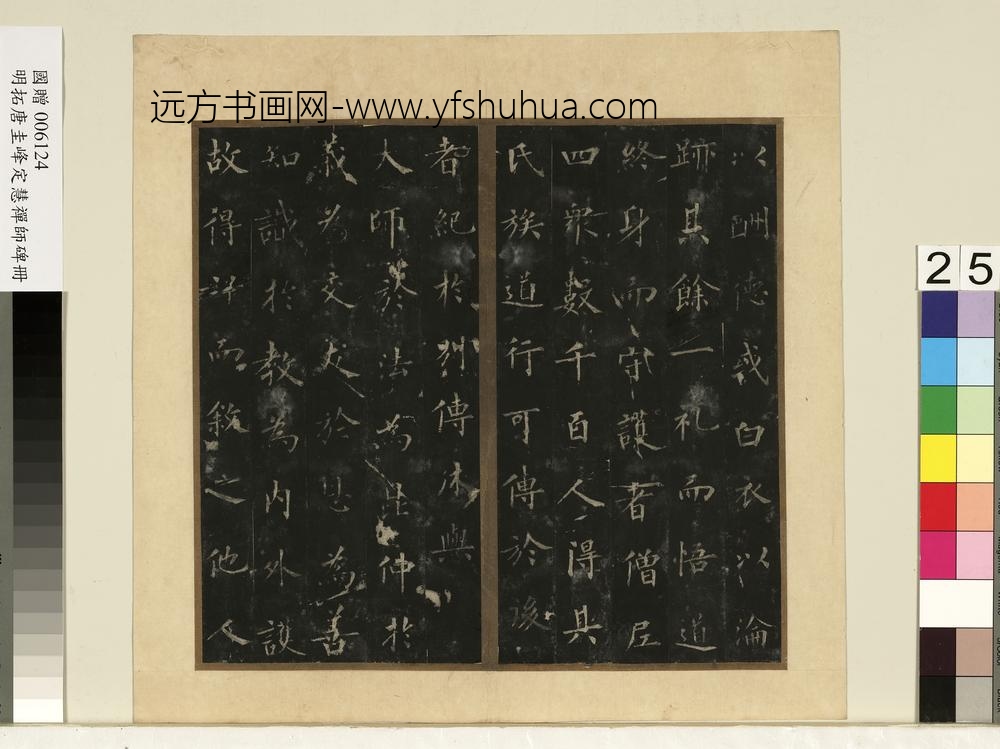 远方书画网-www.yfshuhua.com
國贈 006124
明拓唐圭峰定慧禪師碑冊
25
以酬德或白衣以淪
跡其餘一礼而悟道
終身而守護者僧尼
四衆數千百人得具
氏族道行可傳於後
者紀於别傳休與
大師於法為昆仲於
義為交友於恩為善
知識於教為内外護
故得詳而敘之他人